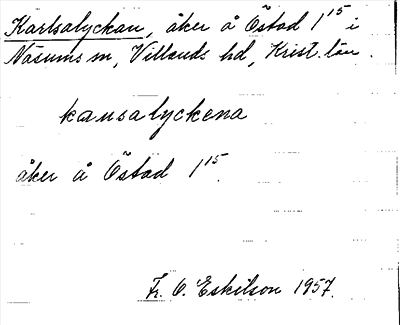 Karlsalyckan, åker å Östad 1¹⁵ i
Näsums sn, Villands hd, Krist. län.
kansalyckena
åker å Östad 1¹⁵.
Fr. O. Eskilson 1957.